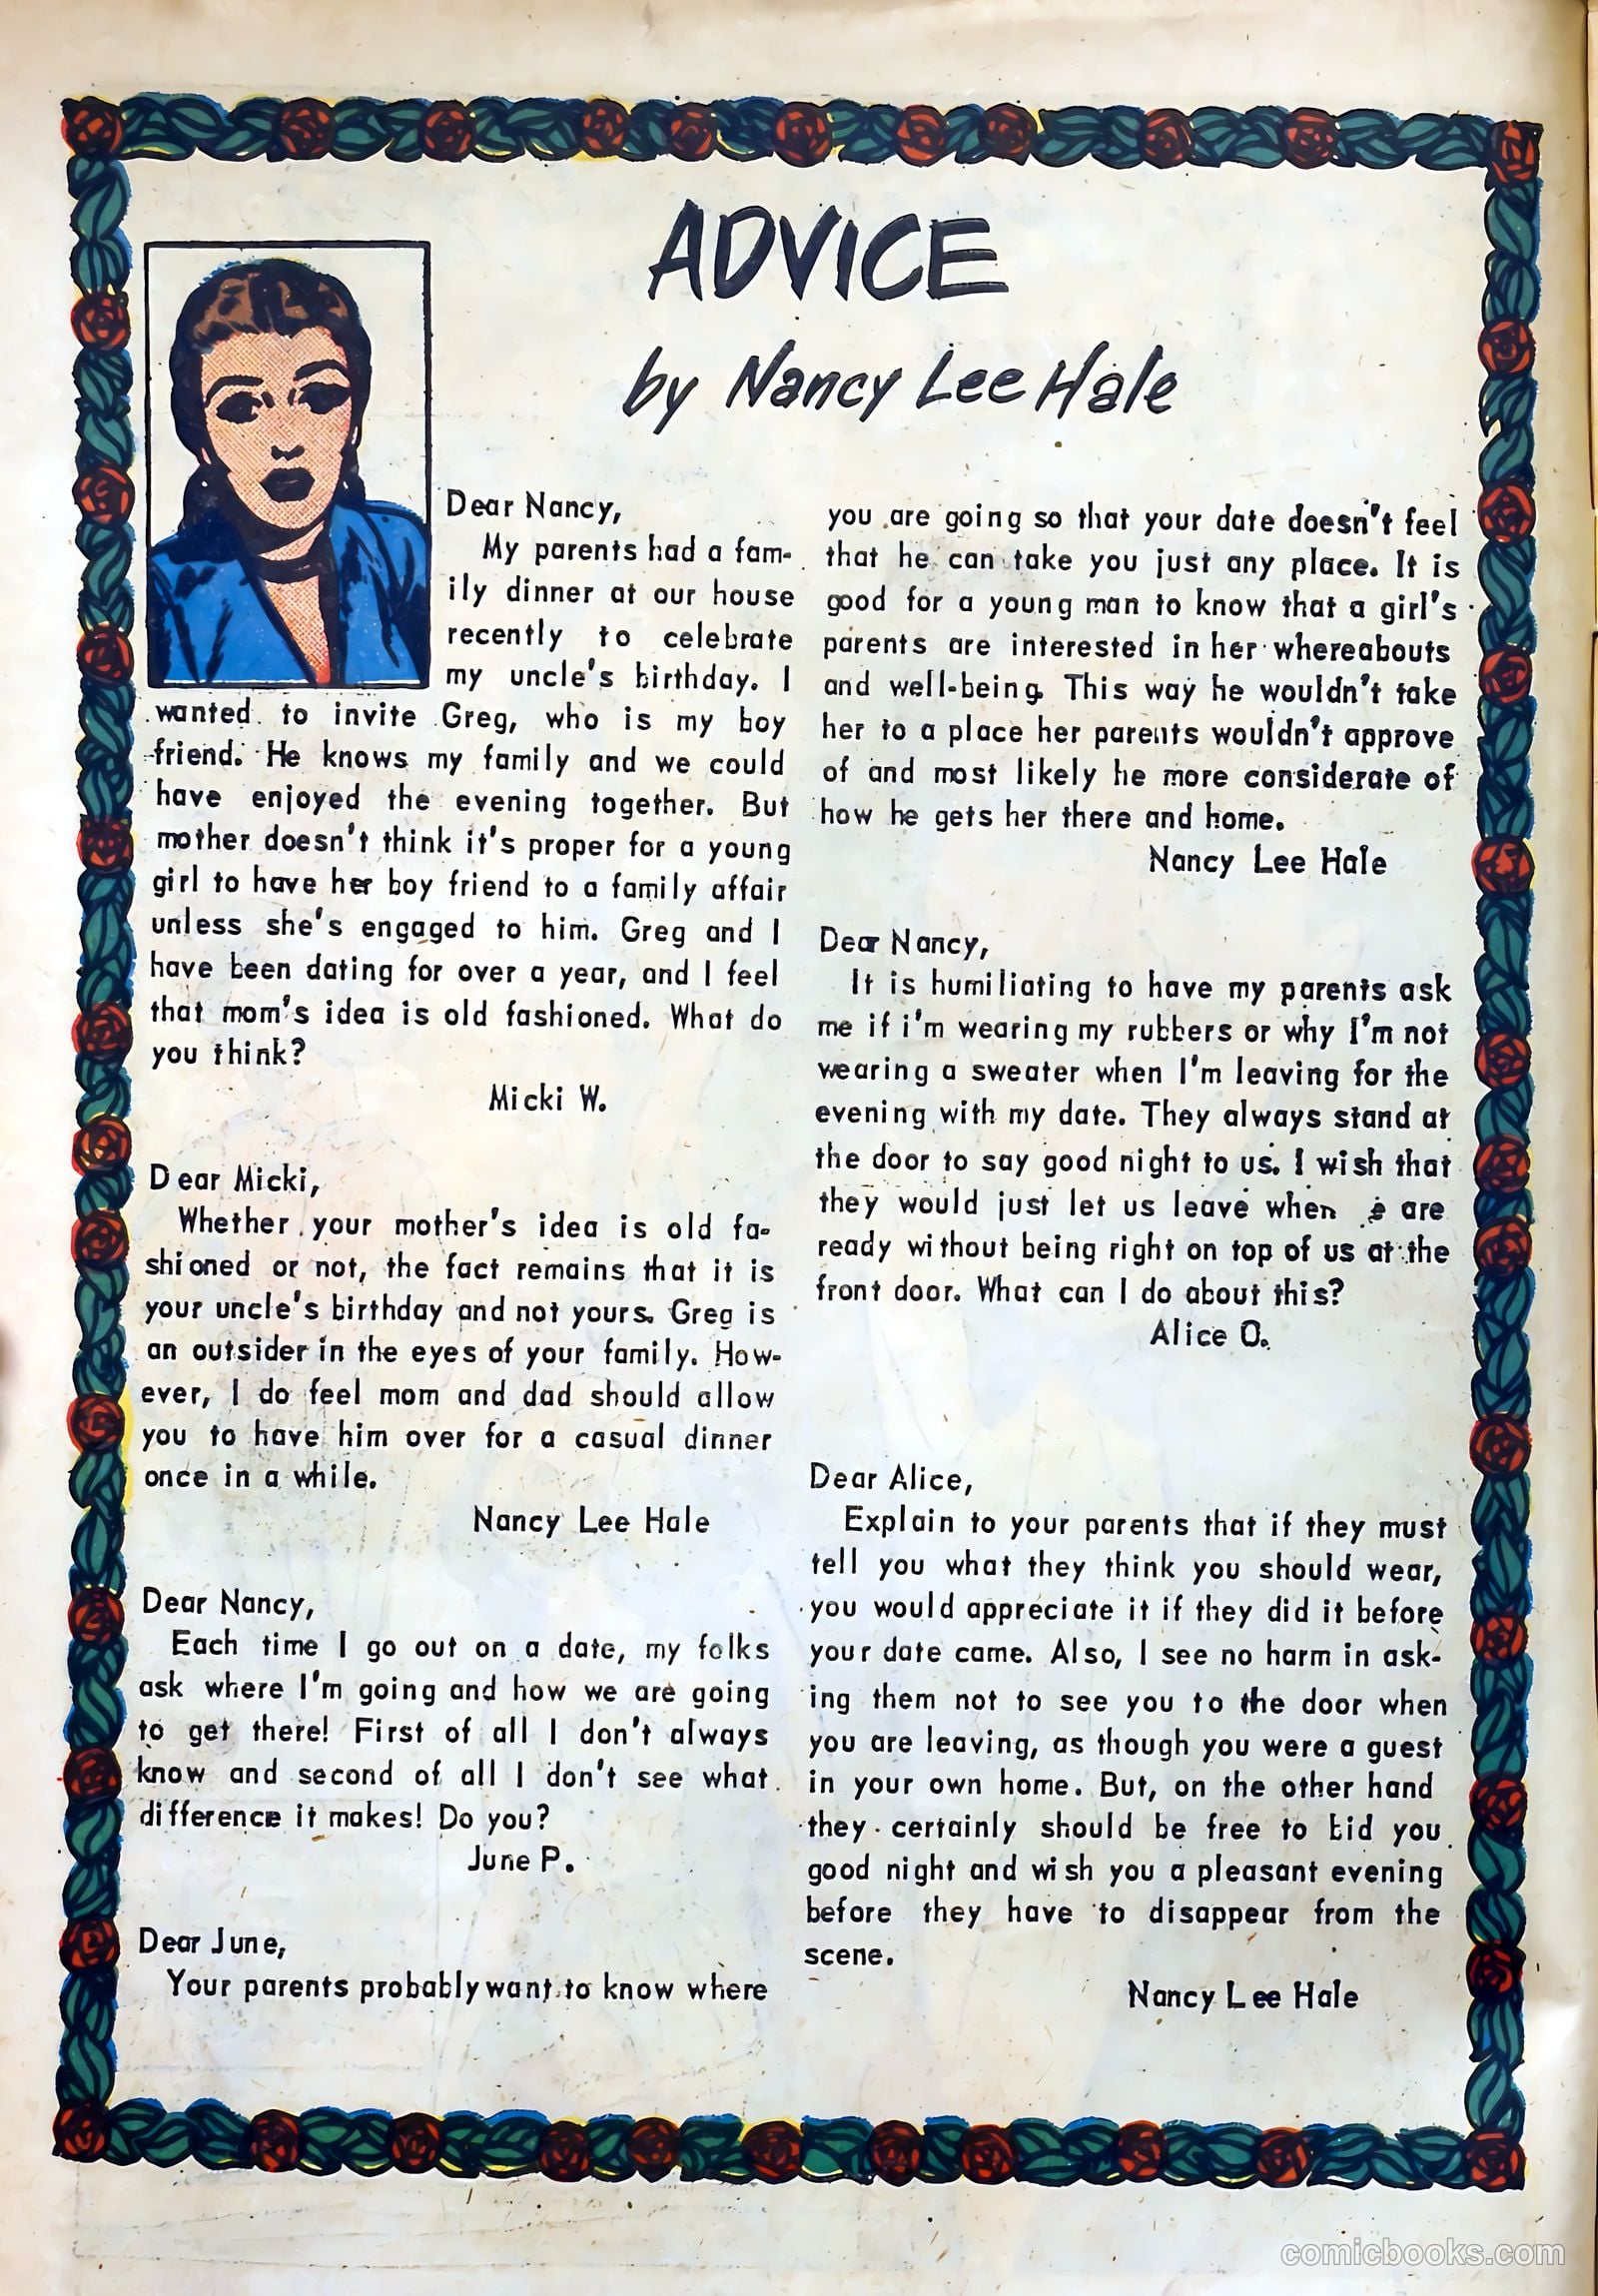 ADVICE
by Nancy Lee Hale
Dear Nancy,
My parents had a fam-
ily dinner at our house
recently to celebrate
my uncle's birthday. I
wanted to invite Greg, who is my boy
friend. He knows my family and we could
have enjoyed the evening together. But
mother doesn't think it's proper for a young
girl to have her boy friend to a family affair
unless she's engaged to him. Greg and I
have been dating for over a year, and I feel
that mom's idea is old fashioned. What do
you think?
Micki W.
Dear Micki,
Whether your mother's idea is old fa-
shioned or not, the fact remains that it is
your uncle's birthday and not yours. Greg is
an outsider in the eyes of your family. How-
ever, I do feel mom and dad should allow
you to have him over for a casual dinner
once in a while.
Nancy Lee Hale
Dear Nancy,
Each time I go out on a date, my folks
ask where I'm going and how we are going
to get there! First of all I don't always
know and second of all I don't see what
difference it makes! Do you?
June P.
Dear June,
Your parents probably want to know where
you are going so that your date doesn't feel
that he can take you just any place. It is
good for a young man to know that a girl's
parents are interested in her whereabouts
and well-being. This way he wouldn't take
her to a place her parents wouldn't approve
of and most likely he more considerate of
how he gets her there and home.
Nancy Lee Hale
Dear Nancy,
It is humiliating to have my parents ask
me if i'm wearing my rubbers or why I'm not
wearing a sweater when I'm leaving for the
evening with my date. They always stand at
the door to say good night to us. I wish that
they would just let us leave when are
ready without being right on top of us at the
front door. What can I do about this?
Alice O.
Dear Alice,
Explain to your parents that if they must
tell you what they think you should wear,
you would appreciate it if they did it before
your date came. Also, I see no harm in ask-
ing them not to see you to the door when
you are leaving, as though you were a guest
in your own home. But, on the other hand
they certainly should be free to bid you
good night and wish you a pleasant evening
before they have to disappear from the
scene.
Nancy Lee Hale
comicbooks.com